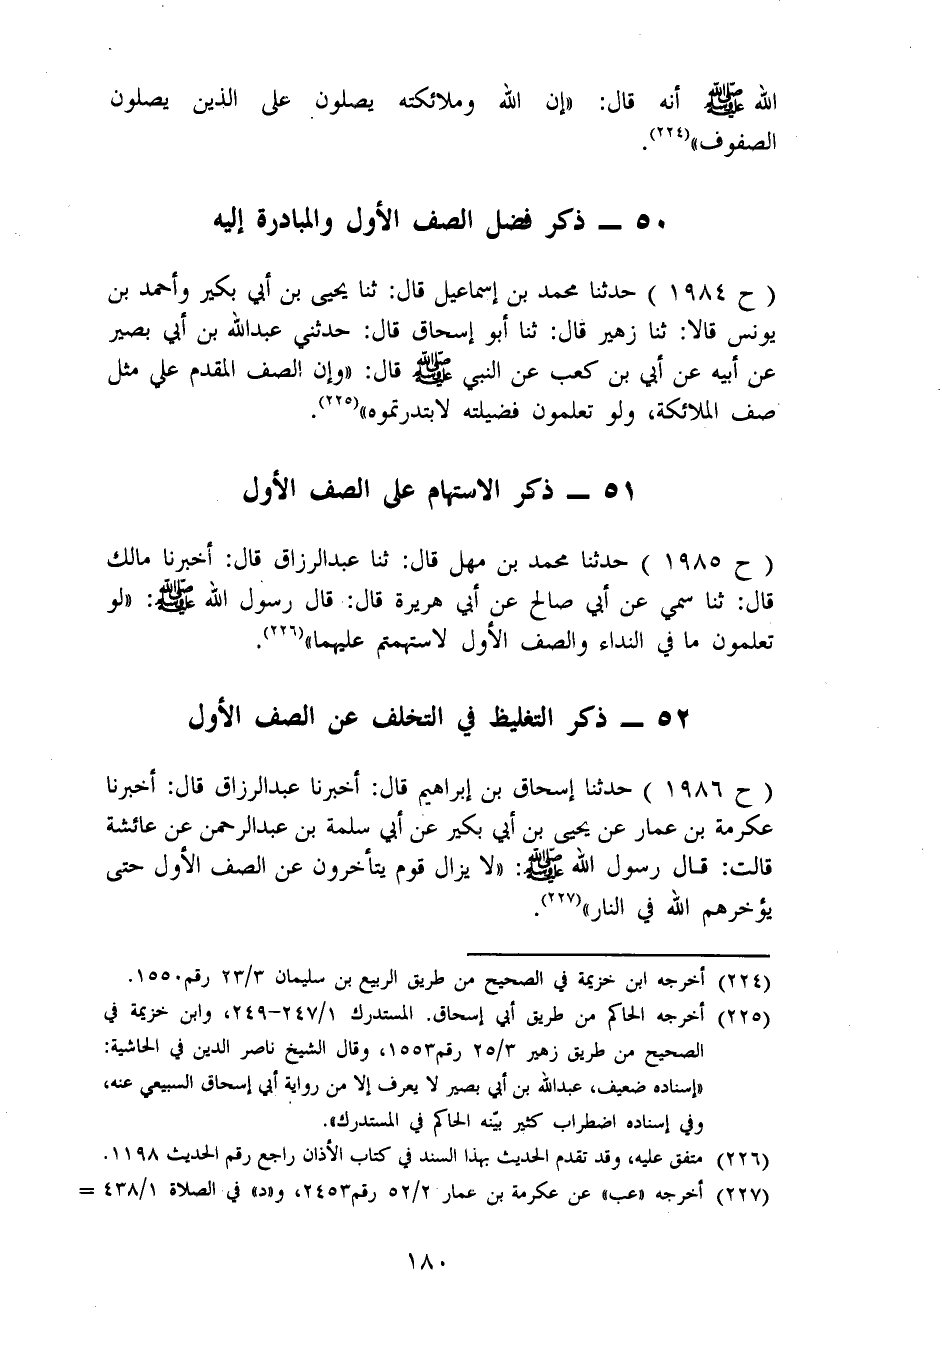 الله ﷺ أنه قال: «إن الله وملائكته يصلون على الذين يصلون
الصفوف»(٢٢٤).
٥٠ ــ ذكر فضل الصف الأول والمبادرة إليه
( ح ١٩٨٤ ) حدثنا محمد بن إسماعيل قال: ثنا يحيى بن أبي بكير وأحمد بن
يونس قالا: ثنا زهير قال: ثنا أبو إسحاق قال: حدثني عبدالله بن أبي بصير
عن أبيه عن أبي بن كعب عن النبي ﷺ قال: «وإن الصف المقدم علي مثل
صف الملائكة، ولو تعلمون فضيلته لابتدرتموه»(٢٢٥).
٥١ ــ ذكر الاستهام على الصف الأول
( ح ١٩٨٥ ) حدثنا محمد بن مهل قال: ثنا عبدالرزاق قال: أخبرنا مالك
قال: ثنا سمي عن أبي صالح عن أبي هريرة قال: قال رسول الله ﷺ: «لو
تعلمون ما في النداء والصف الأول لاستهمتم عليهما»(٢٢٦).
٥٢ ــ ذكر التغليظ في التخلف عن الصف الأول
( ح ١٩٨٦ ) حدثنا إسحاق بن إبراهيم قال: أخبرنا عبدالرزاق قال: أخبرنا
عكرمة بن عمار عن يحيى بن أبي بكير عن أبي سلمة بن عبدالرحمن عن عائشة
قالت: قال رسول الله ﷺ: «لا يزال قوم يتأخرون عن الصف الأول حتى
يؤخرهم الله في النار»(٢٢٧).
(٢٢٤) أخرجه ابن خزيمة في الصحيح من طريق الربيع بن سليمان ٢٣/٣ رقم١٥٥٠.
(٢٢٥) أخرجه الحاكم من طريق أبي إسحاق. المستدرك ٢٤٧/١–٢٤٩، وابن خزيمة في
الصحيح من طريق زهير ٢٥/٣ رقم١٥٥٣، وقال الشيخ ناصر الدين في الحاشية:
«إسناده ضعيف، عبدالله بن أبي بصير لا يعرف إلا من رواية أبي إسحاق السبيعي عنه،
وفي إسناده اضطراب كثير بيّنه الحاكم في المستدرك».
(٢٢٦) متفق عليه، وقد تقدم الحديث بهذا السند في كتاب الأذان راجع رقم الحديث ١١٩٨.
(٢٢٧) أخرجه «عب» عن عكرمة بن عمار ٥٢/٢ رقم٢٤٥٣، و«د» في الصلاة ٤٣٨/١ =
١٨٠